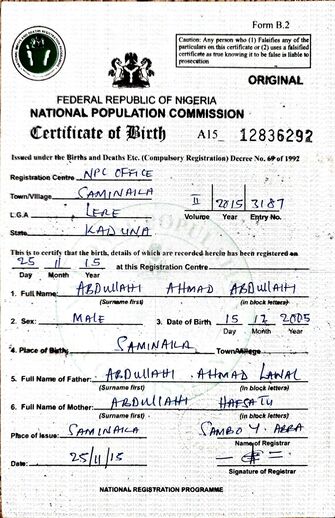 Form B.2
Caution: Any person who (1) Falsifies any of the
particulars on this certificate or (2) uses a falsified
certificate as true knowing it to be false is liable to
prosecution
ORIGINAL
FEDERAL REPUBLIC OF NIGERIA
NATIONAL POPULATION COMMISSION
Certificate of Birth A15 12836292
Issued under the Births and Deaths Etc. (Compulsory Registration) Decree No. 69 of 1992
Registration Centre NPC OFFICE
Town/Village SAMINAKA II 2015 3187
L.G.A LERE Volume Year Entry No.
State KADUNA
This is to certify that the birth, details of which are recorded herein has been registered on
25 11 15 at this Registration Centre
Day Month Year
1. Full Name: ABDULLAHI AHMAD ABDULLAHI
(Surname first) (in block letters)
2. Sex: MALE 3. Date of Birth 15 12 2005
Day Month Year
4. Place of Birth: SAMINAKA Town/Village
5. Full Name of Father: ABDULLAHI AHMAD LAWAL
(Surname first) (in block letters)
6. Full Name of Mother: ABDULLAHI HAFSATU
(Surname first) (in block letters)
Place of Issue: SAMINAKA SAMBO Y. ABBA
Name of Registrar
Date: 25/11/15
Signature of Registrar
NATIONAL REGISTRATION PROGRAMME